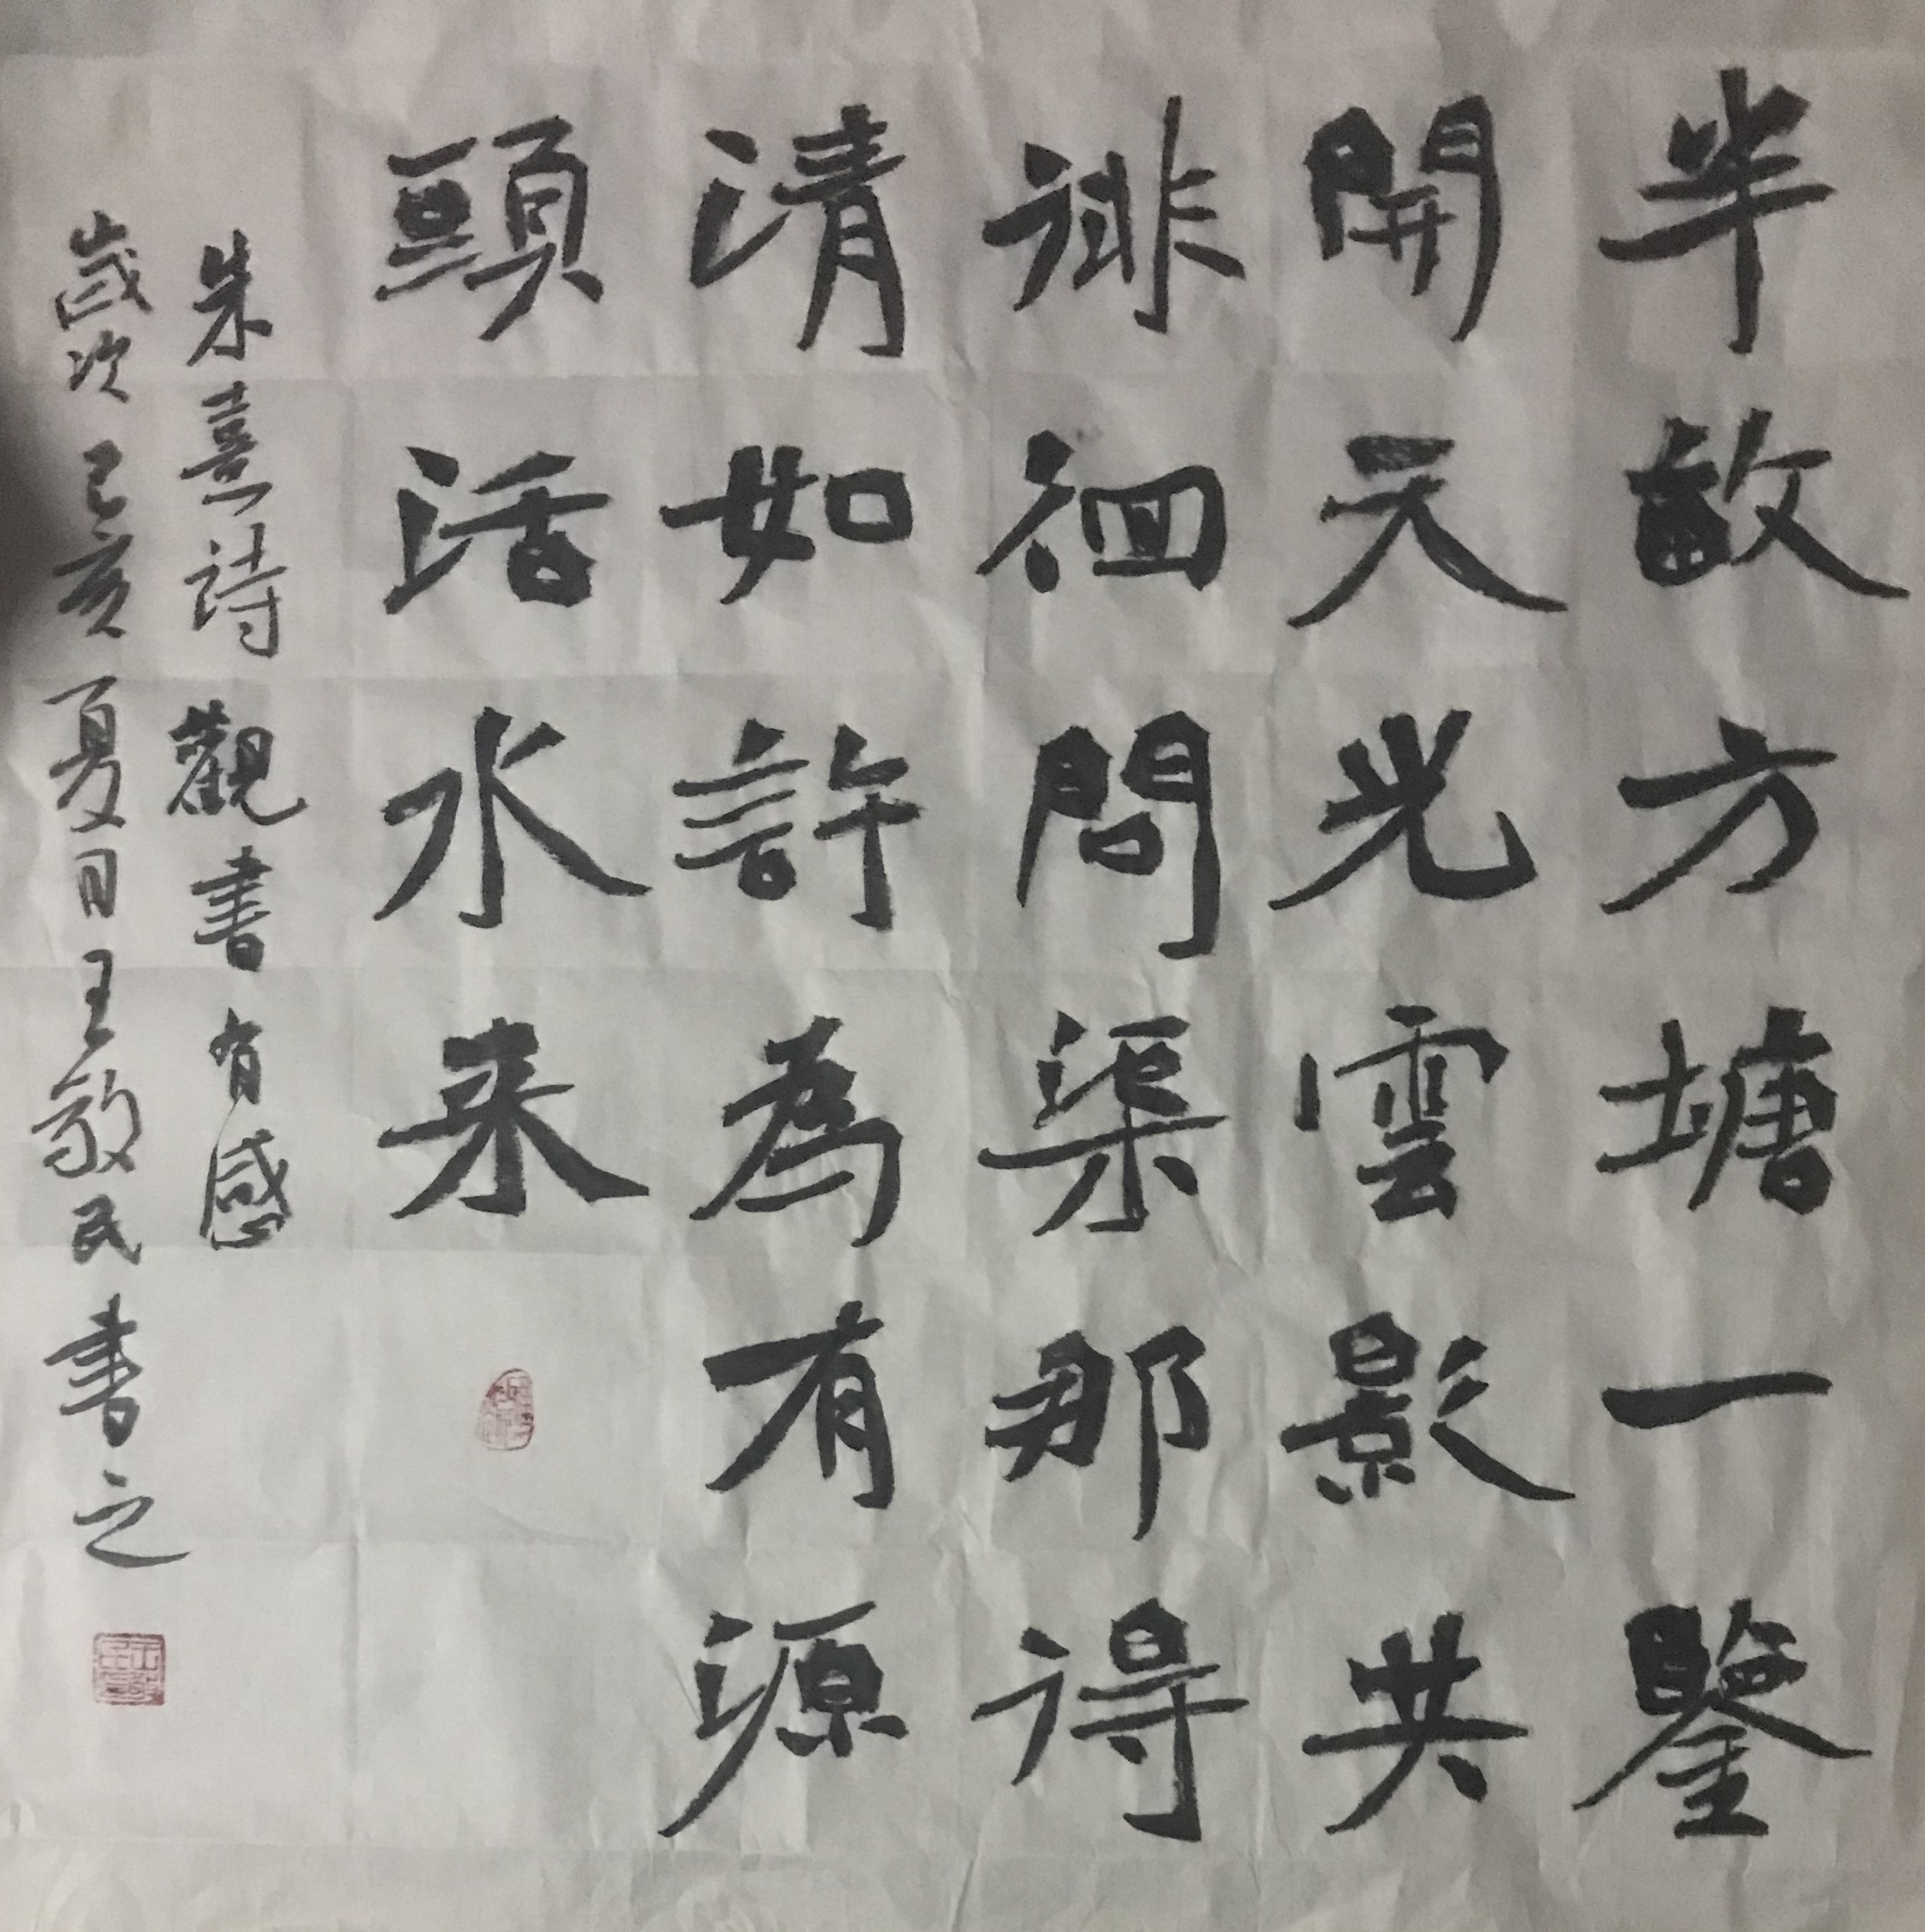 半畝方塘一鑒
開天光雲影共
徘徊問渠那得
清如許為有源
頭活水来
朱熹詩 觀書有感
歲次己亥夏日王敬民書之